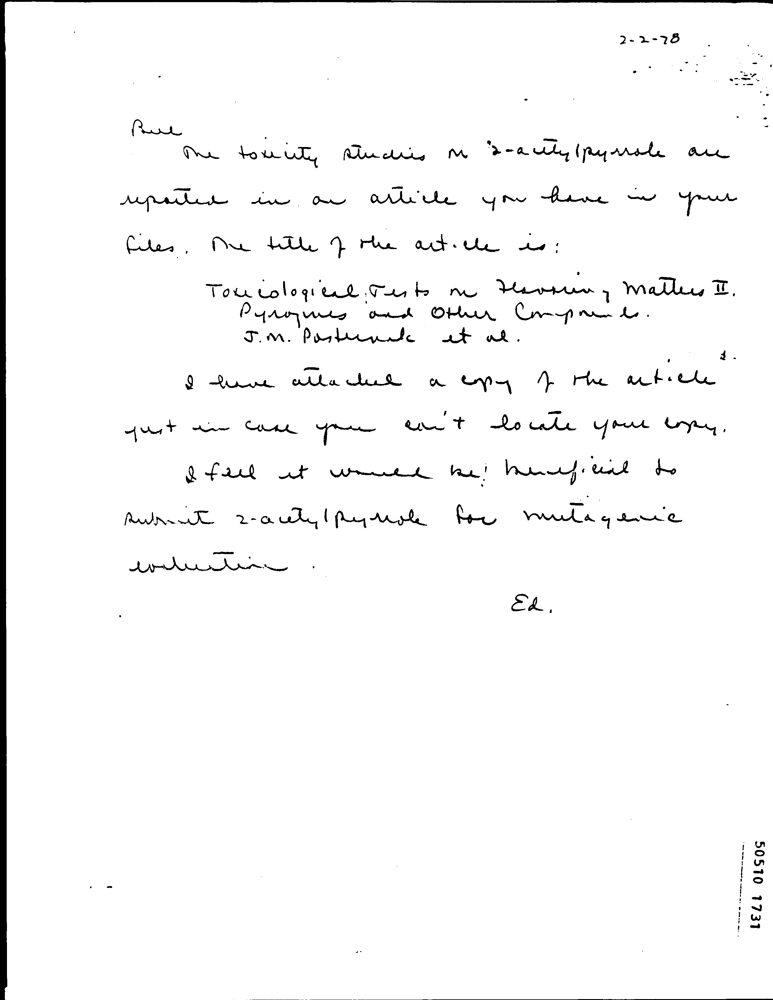 2-2-78
Bill
The toxicity studies on 2-acetylpyrrole are
reported in an article you have in your
files. The title of the article is:
Toxicological Tests on Flavoring Matters II.
Pyrazines and Other Compounds.
J.M. Posternak et al.
I have attached a copy of the article
just in case you can't locate your copy.
I feel it would be beneficial to
submit 2-acetylpyrrole for mutagenic
evaluation.
Ed.
50510 1731